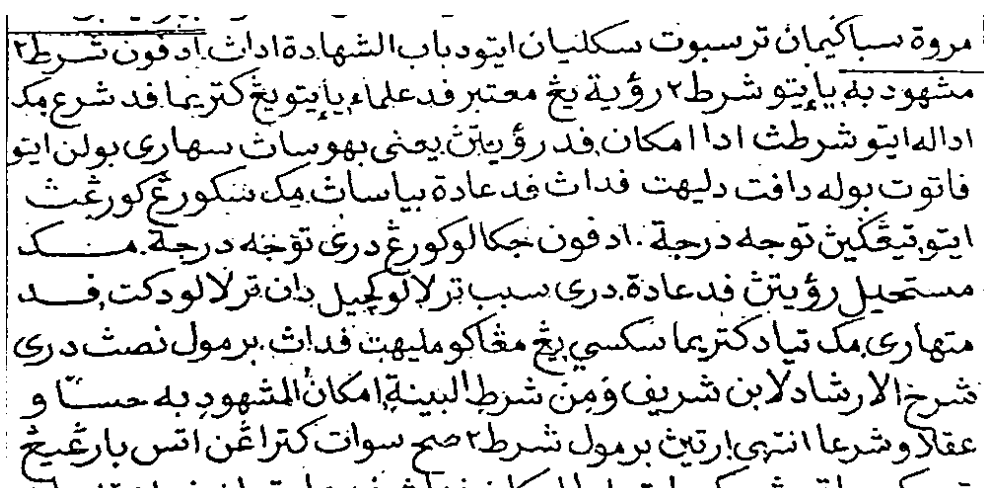 مروة سباݢيمان ترسبوت سكلين ايتو دباب الشهادة اداث. ادفون شرط٢
مشهود به يائيتو شرط٢ رؤية يڠ معتبر فد علماء يائيتو يڠ كتريما فد شرع مك
اداله ايتو شرطڽ ادا امكان فد رؤيتڽ يعني بهوساڽ سهاري بولن ايتو
فاتوت بوله دافت دليهت فداڽ فد عادة بياساڽ مك سكورڠ كورڠڽ
ايتو تيڠݢيڽ توجه درجة. ادفون جكالو كورڠ دري توجه درجة. مك
مستحيل رؤيتڽ فد عادة. دري سبب ترلالو كچيل دان ترلالو دكت فد
متهاري مك تياد كتريما سكسي يڠ مڠاكو مليهت فداڽ. برمول نصڽ دري
شرح الارشاد لابن شريف وَمِن شرطِ البينةِ امكانُ المشهودِ به حسّا و
عقلا وشرعا انتهى ارتيڽ برمول شرط٢ صح سوات كتراڠن اتس بارڠ يڠ